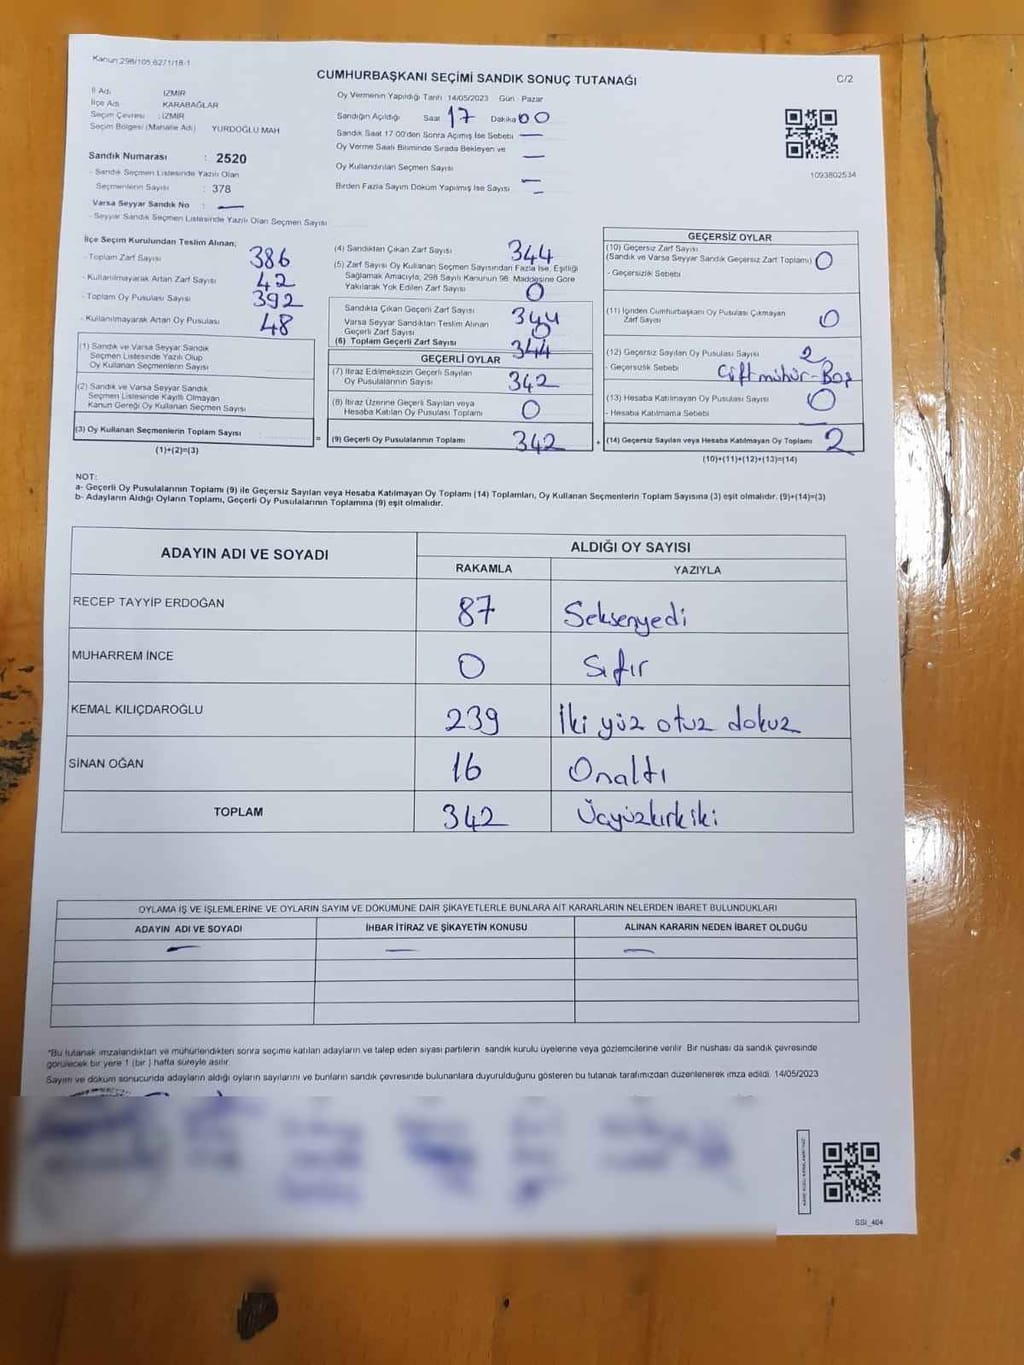 Kanun:298/105,6271/18-1
CUMHURBAŞKANI SEÇİMİ SANDIK SONUÇ TUTANAĞI
C/2
İl Adı : İZMİR
İlçe Adı : KARABAĞLAR
Seçim Çevresi : İZMİR
Seçim Bölgesi (Mahalle Adı) YURDOĞLU MAH
Sandık Numarası : 2520
- Sandık Seçmen Listesinde Yazılı Olan
Seçmenlerin Sayısı : 378
Varsa Seyyar Sandık No : —
- Seyyar Sandık Seçmen Listesinde Yazılı Olan Seçmen Sayısı
Oy Vermenin Yapıldığı Tarih : 14/05/2023 Gün : Pazar
Sandığın Açıldığı Saat 17 Dakika 00
Sandık Saat 17:00'den Sonra Açılmış İse Sebebi —
Oy Verme Saati Bitiminde Sırada Bekleyen ve —
Oy Kullandırılan Seçmen Sayısı —
Birden Fazla Sayım Döküm Yapılmış İse Sayısı —
1093802534
İlçe Seçim Kurulundan Teslim Alınan;
- Toplam Zarf Sayısı 386
- Kullanılmayarak Artan Zarf Sayısı 42
- Toplam Oy Pusulası Sayısı 392
- Kullanılmayarak Artan Oy Pusulası 48
(1) Sandık ve Varsa Seyyar Sandık
Seçmen Listesinde Yazılı Olup
Oy Kullanan Seçmenlerin Sayısı
(2) Sandık ve Varsa Seyyar Sandık
Seçmen Listesinde Kayıtlı Olmayan
Kanun Gereği Oy Kullanan Seçmen Sayısı
(3) Oy Kullanan Seçmenlerin Toplam Sayısı :
(1)+(2)=(3)
=
(4) Sandıktan Çıkan Zarf Sayısı 344
(5) Zarf Sayısı Oy Kullanan Seçmen Sayısından Fazla İse, Eşitliği
Sağlamak Amacıyla, 298 Sayılı Kanunun 98. Maddesine Göre
Yakılarak Yok Edilen Zarf Sayısı 0
Sandıkta Çıkan Geçerli Zarf Sayısı 344
Varsa Seyyar Sandıktan Teslim Alınan
Geçerli Zarf Sayısı 0
(6) Toplam Geçerli Zarf Sayısı 344
GEÇERLİ OYLAR
(7) İtiraz Edilmeksizin Geçerli Sayılan
Oy Pusulalarının Sayısı 342
(8) İtiraz Üzerine Geçerli Sayılan veya
Hesaba Katılan Oy Pusulası Toplamı 0
(9) Geçerli Oy Pusulalarının Toplamı 342
+
GEÇERSİZ OYLAR
(10) Geçersiz Zarf Sayısı
(Sandık ve Varsa Seyyar Sandık Geçersiz Zarf Toplamı) 0
- Geçersizlik Sebebi
(11) İçinden Cumhurbaşkanı Oy Pusulası Çıkmayan
Zarf Sayısı 0
(12) Geçersiz Sayılan Oy Pusulası Sayısı 2
- Geçersizlik Sebebi Çift mühür-Boş
(13) Hesaba Katılmayan Oy Pusulası Sayısı 0
- Hesaba Katılmama Sebebi
(14) Geçersiz Sayılan veya Hesaba Katılmayan Oy Toplamı 2
(10)+(11)+(12)+(13)=(14)
NOT:
a- Geçerli Oy Pusulalarının Toplamı (9) ile Geçersiz Sayılan veya Hesaba Katılmayan Oy Toplamı (14) Toplamları, Oy Kullanan Seçmenlerin Toplam Sayısına (3) eşit olmalıdır. (9)+(14)=(3)
b- Adayların Aldığı Oyların Toplamı, Geçerli Oy Pusulalarının Toplamına (9) eşit olmalıdır.
ADAYIN ADI VE SOYADI ALDIĞI OY SAYISI
RAKAMLA YAZIYLA
RECEP TAYYİP ERDOĞAN 87 Seksenyedi
MUHARREM İNCE 0 Sıfır
KEMAL KILIÇDAROĞLU 239 İki yüz otuz dokuz
SİNAN OĞAN 16 Onaltı
TOPLAM 342 Üçyüzkırkiki
OYLAMA İŞ VE İŞLEMLERİNE VE OYLARIN SAYIM VE DÖKÜMÜNE DAİR ŞİKAYETLERLE BUNLARA AİT KARARLARIN NELERDEN İBARET BULUNDUKLARI
ADAYIN ADI VE SOYADI İHBAR İTİRAZ VE ŞİKAYETİN KONUSU ALINAN KARARIN NEDEN İBARET OLDUĞU
— — —
*Bu tutanak imzalandıktan ve mühürlendikten sonra seçime katılan adayların ve talep eden siyasi partilerin sandık kurulu üyelerine veya gözlemcilerine verilir. Bir nüshası da sandık çevresinde
görülecek bir yere 1 (bir ) hafta süreyle asılır.
Sayım ve döküm sonucunda adayların aldığı oyların sayılarını ve bunların sandık çevresinde bulunanlara duyurulduğunu gösteren bu tutanak tarafımızdan düzenlenerek imza edildi. 14/05/2023
SSI_404